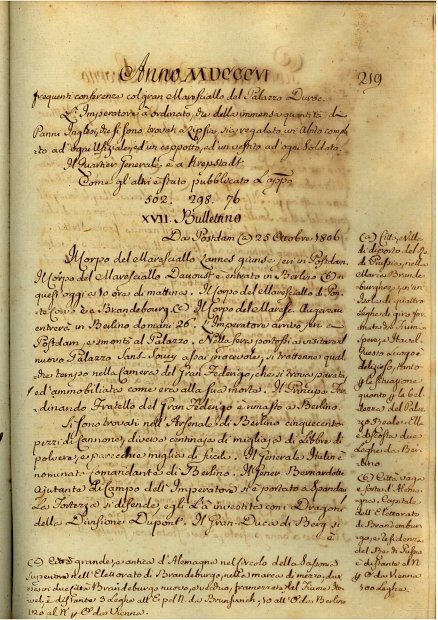 Anno MDCCCVI
219
frequenti conferenze col gran Maresciallo del Palazzo Duroc.
L'Imperatore à ordinato, che della immensa quantità di
Panni Inglesi, che si sono trovati a Lipsia, sia regalato un' Abito comp
to ad ogni Uffiziale, ed un cappotto, ed un vestito ad ogni Soldato.
Il Quartier Generale è a Kropstadt.
Come gl'altri è stato pubblicato
502. 298. 76
XVII. Bullettino
Da Postdam (a) 25 Ottobre 1806
Il Corpo del Maresciallo Lannes giunse ieri in Postdam.
Il Corpo del Maresciallo Davoust è entrato in Berlino (b) in
quest'oggi a 10 ore di mattina. Il Corpo del Maresciallo di Pon-
te Corvo è a Brandebourg (c). Il Corpo del Maresc. Augereau
entrerà in Berlino domani 26. L'Imperatore arrivò jeri a
Postdam, e smontò al Palazzo. Nella sera portossi a visitare il
nuovo Palazzo Sans-Soucy assai piacevole, si trattenne qual-
che tempo nella Camera del Gran Federigo, che si trova parata,
ed ammobiliata come era alla sua morte. Il Principe Fer-
dinando Fratello del Gran Federigo è rimasto a Berlino.
Si sono trovati nell'Arsenale di Berlino cinquecento
pezzi di Cannone, diverse centinaja di migliaja di Libbre di
polvere, e parecchie migliaja di fucili. Il Generale Hulin è
nominato Comandante di Berlino. Il Gener Bernardotti
Ajutante di Campo dell'Imperatore si è portato a Spandau
La Fortezza si difende, egli L'à investita con i Dragoni
della Divisione Dupont. Il Gran-Duca di Berg si
è
(a) Città, e Villa
di diporto del Re
di Prussia, nella
Marca Brande-
burghese, in un'
Isola di quattro
Leghe di giro for-
mata da i Fiumi
Sprea, e Havel.
Questo luogo è
delizioso, tanto
per la situazione
quanto per la bel-
lezza del Palaz-
zo Reale. Ell'
è discosta due
Leghe da Ber-
lino.
(b) Città vaga
e forte d'Alema-
gna, Capitale
dell'Elettorato
di Brandembur-
go, e residenza
del Re di Prussia
è distante al N
p. O. da Vienna
100 Leghe
(c) Città grande, e antica d'Alemagna nel Circolo della Sassonia
Superiore nell'Elettorato di Brandeburgo, nella marca di mezzo, divi-
vecchio, framezzata dal Fiume Ha-
vel, è distante 3 Leghe
120 al N p. O. da Vienna.